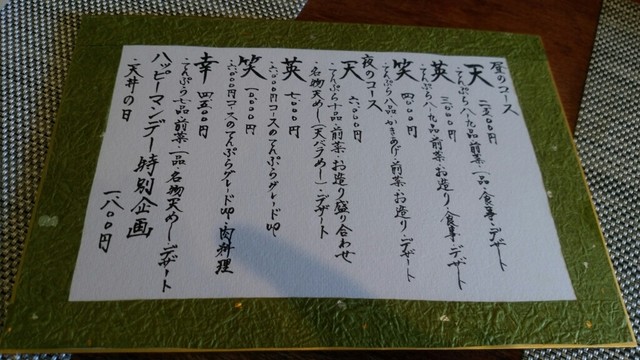 昼のコース
天 二五〇〇円
・てんぷら八〜九品・前菜一品・食事・デザート
英 三〇〇〇円
・てんぷら八〜九品・前菜・お造り・食事・デザート
笑 四〇〇〇円
・てんぷら八品・かきあげ・前菜・お造り・デザート
夜のコース
天 六〇〇〇円
・てんぷら十品・前菜・お造り盛り合わせ
・名物天めし(天バラめし)・デザート
英 七〇〇〇円
・六〇〇〇円コースのてんぷらグレードup
笑 一〇〇〇〇円
・六〇〇〇円コースのてんぷらグレードup・肉料理
幸 四五〇〇円
・てんぷら七品・前菜一品・名物天めし・デザート
ハッピーマンデー特別企画
・天丼の日 一八〇〇円